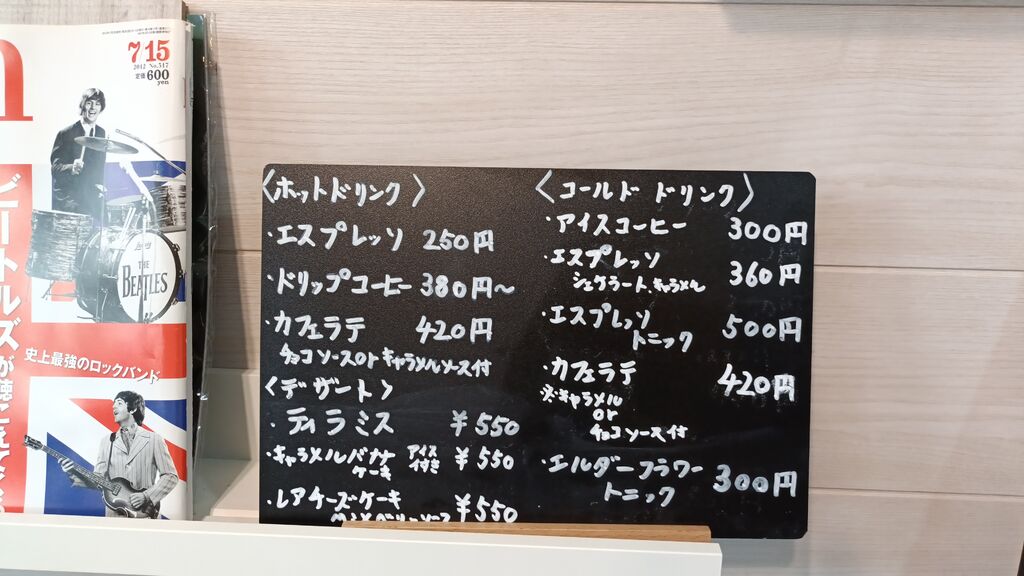 7 15
2012 No.517
定価600
yen
THE
BEATLES
ビートルズが聴こえてくる
史上最強のロックバンド
〈ホットドリンク〉
・エスプレッソ 250円
・ドリップコーヒー 380円〜
・カフェラテ 420円
チョコソースorキャラメルソース付
〈デザート〉
・ティラミス ¥550
・キャラメルバナナ アイス ¥550
ケーキ 付き
・レアチーズケーキ ¥550
〈コールドドリンク〉
・アイスコーヒー 300円
・エスプレッソ 360円
シェケラートキャラメル
・エスプレッソ 500円
トニック
・カフェラテ 420円
※キャラメル
or
チョコソース付
・エルダーフラワー 300円
トニック